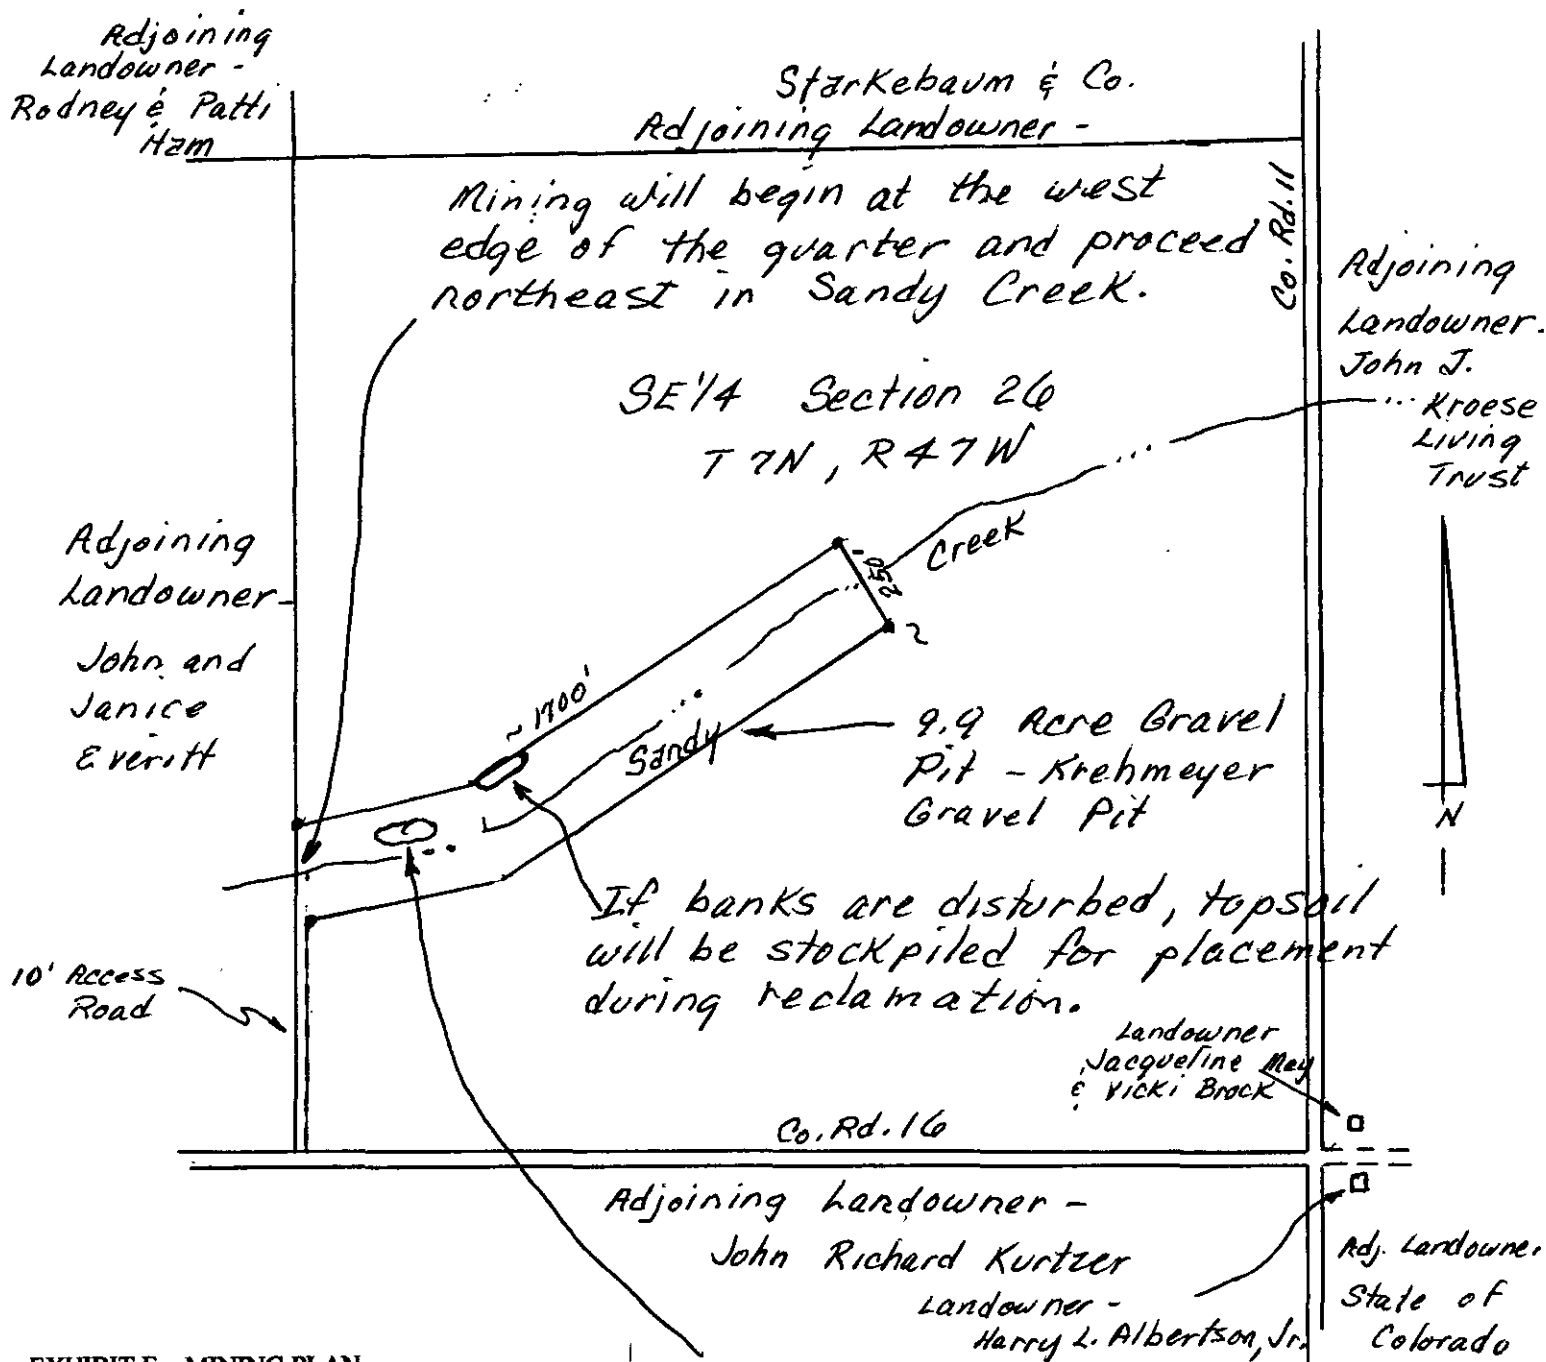 Adjoining
Landowner -
Rodney & Patti
Ham
Starkebaum & Co.
Adjoining Landowner -
Mining will begin at the west
edge of the quarter and proceed
northeast in Sandy Creek.
Co. Rd. 11
Adjoining
Landowner -
John J.
Kroese
Living
Trust
SE 1/4 Section 26
T 7N, R 47W
Creek
250'
Adjoining
Landowner -
John and
Janice
Everitt
~ 1700'
Sandy
9.9 Acre Gravel
Pit - Krehmeyer
Gravel Pit
N
If banks are disturbed, topsoil
will be stockpiled for placement
during reclamation.
10' Access
Road
Landowner
Jacqueline May
& Vicki Brock
Co. Rd. 16
Adjoining Landowner -
John Richard Kurtzer
Landowner -
Harry L. Albertson, Jr.
Adj. Landowner
State of
Colorado
EXHIBIT E - MINING PLAN